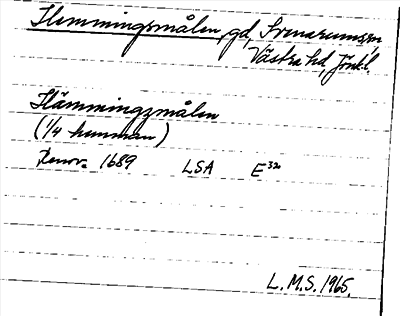 Hemmingsmålen, gd, Svenarumssn,
Västra hd, Jönk.l.
Hämmingzmålen
(1/4 hemman)
Renov. 1689 LSA E³²ᵃ
L. M.S. 1965.